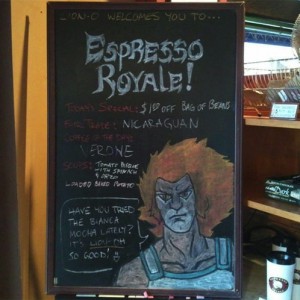 LION-O WELCOMES YOU TO...
ESPRESSO
ROYALE!
TODAY'S SPECIAL: $1.00 OFF BAG OF BEANS
NICARAGUAN
COFFEE OF THE DAY:
VERONE
SOUPS: TOMATO BISQUE
WITH SPINACH
& ORZO
LOADED BAKED POTATO
HAVE YOU TRIED
THE BIANCA
MOCHA LATELY?
IT'S
SO GOOD!